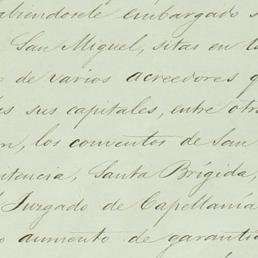 abiendosele embargado s
San Miguel, sitas en l
de varios acreedores q
as sus capitales, entre otr
n, los conventos de San
tencia, Santa Brígida,
Juzgado de Capellanía
o aumento de garantí